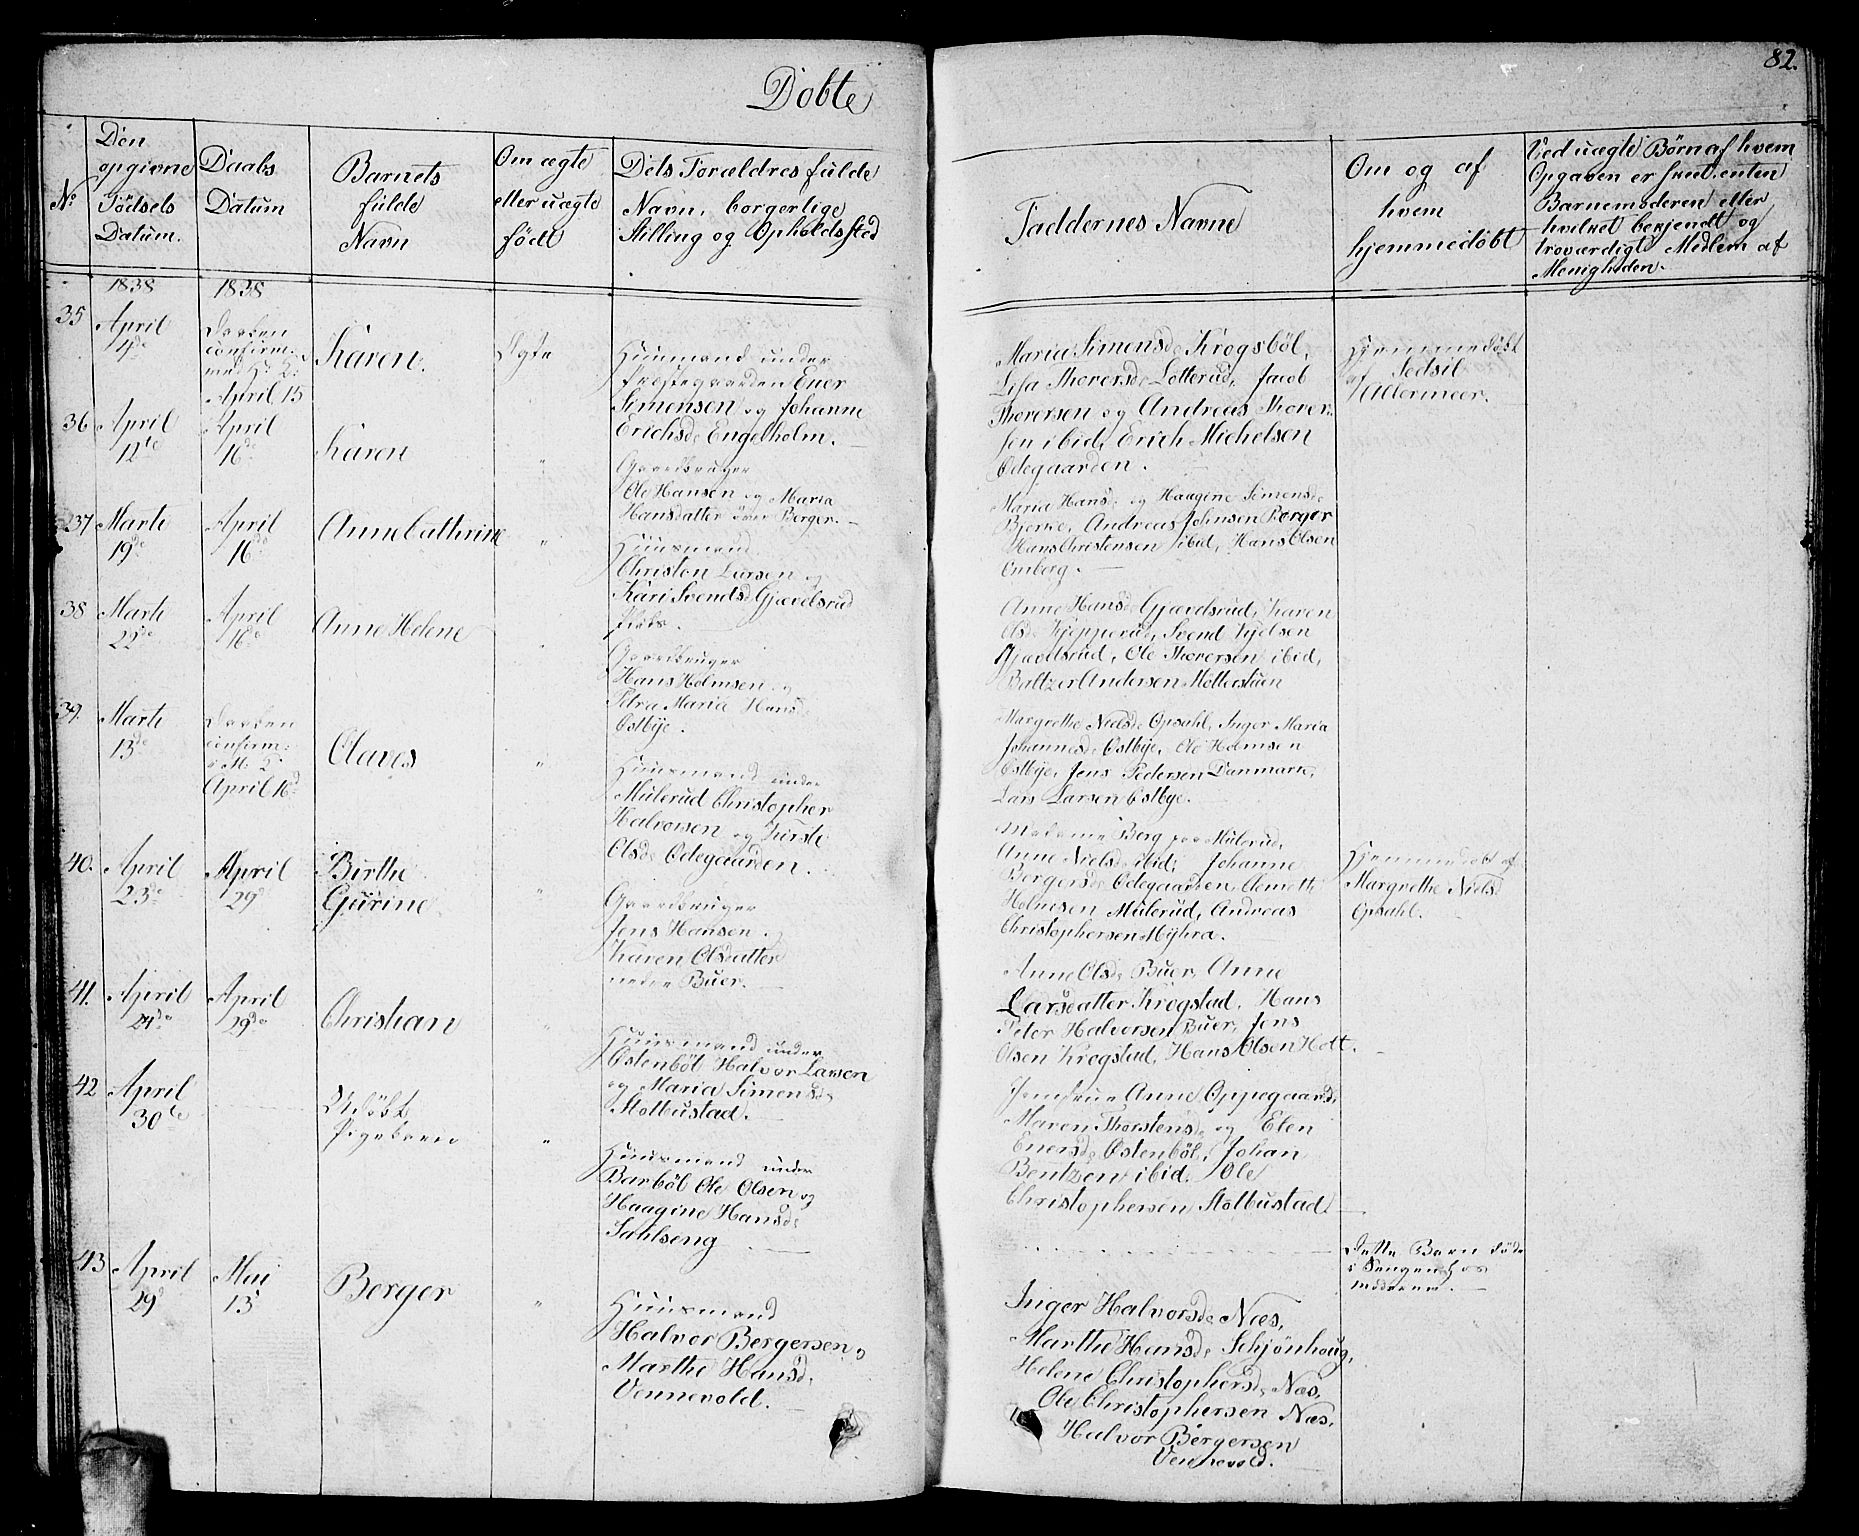 Døbte
82.
No
Den
opgivne
Fødsels
Datum.
Daabs
Datum
Barnets
fulde
Navn
Om ægte
eller uægte
født
Dets Forældres fulde
Navn, borgerlige
Stilling og Opholdssted
Faddernes Navne
Om og af
hvem
hjemmedøbt
Ved uægte Børn af hvem
Opgaven er skeet, enten
Barnemoderen eller
hvilket bekjendt og
troværdigt Medlem af
Menigheden.
1838
1838
35
April
4de
Daaben
confirm:
April 15
Karen.
Ægte
Huusmand under
Præstegaarden Ener
Simensen og Johanne
Erichsd: Engelholm.
Maria Simensd: Krogsbøl,
Lisa Thorersd: Lotterud, Jacob
Thorersen og Andreas Thorer-
sen ibid, Erich Michelsen
Ødegaarden.
Hjemmedøbt
af Sedsil
Altermeer.
36
April
12te
April
16de
Karen
"
Gaardbruger
Ole Hansen og Maria
Hansdatter øvre Berger.
Maria Hansd: og Haagine Simensd:
Bjerke, Andreas Johnsen Berger
Hans Christensen ibid, Hans Olsen
Omberg.
37
Marti
19de
April
16de
Anne Cathrine
"
Huusmand
Christen Larsen og
Kari Svendsd: Gjævelsrud
Plads.
Anne Hansd: Gjævelsrud, Karen
Olsd: Kjepperud, Svend Kjelsen
Gjævelsrud, Ole Thorersen ibid,
Baltzer Andersen Mølterstuen
38
Marti
22de
April
16de
Anne Helene
"
Gaardbruger
Hans Holmsen og
Petra Maria Hansd:
Østbye.
Margrethe Nielsd: Opsahl, Inger Maria
Johannesd: Østbye, Ole Holmsen
Østbye, Jens Pedersen Danmark,
Lars Larsen Østbye.
39.
Marti
13de
Daaben
confirm:
April 16d
Olaves
"
Huusmand under
Mülerud Christopher
Halvorsen og Kirsti
Olsd: Ødegaarden.
Madame Berg paa Mülerud,
Anne Nielsd: ibid, Johanne
Bergersd: Ødegaarden, Clemet
Holmsen Mülerud, Andreas
Christophersen Myhra.
Hjemmedøbt af
Margrethe Nielsd
Opsahl.
40.
April
23de
April
29de
Birthe
Gurine
"
Gaardbruger
Jens Hansen og
Karen Olsdatter
nedre Buer.
Anne Olsd: Buer, Anne
Larsdatter Krogstad, Hans
Peter Halvorsen Buer, Jens
Olsen Krogstad, Hans Olsen Holt.
41.
April
24de
April
29de
Christian
"
Huusmand under
Østenbøl Halvor Larsen
og Maria Simensd:
Stolbustad.
Jomfrue Anne Oppegaard,
Maren Thorstensd: og Elen
Enersd: Østenbøl, Johan
Bentzen ibid, Ole
Christophersen Stolbustad
42
April
30te
Udøbt
Pigebarn
"
Huusmand under
Barbøl Ole Olsen og
Haagine Hansd:
Sahlseng
Dette Barn døde
i Sengen hos
moderen.
43
April
29d
Mai
13
Berger
"
Huusmand
Halvor Bergersen og
Marthe Hansd:
Vennevold.
Inger Halvorsd: Næs,
Marthe Hansd: Schjønhoug,
Helene Christophersd: Næs,
Ole Christophersen Næs,
Halvor Bergersen
Vennevold.